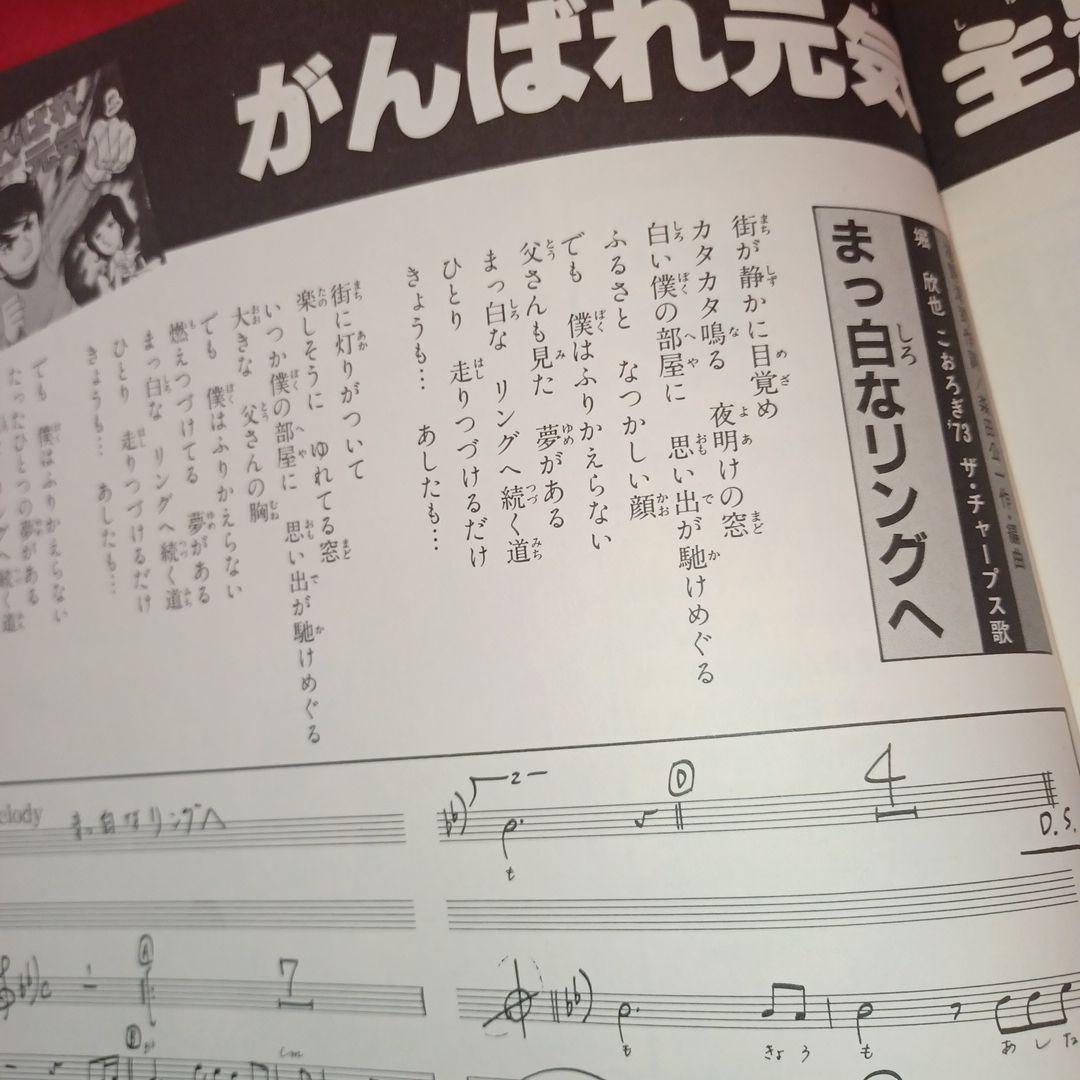 がんばれ元気
主
まっ白なリングへ
郷 欣也 こおろぎ'73 ザ・チャープス歌
街が静かに目覚め
カタカタ鳴る 夜明けの窓
白い僕の部屋に 思い出が馳けめぐる
ふるさと なつかしい顔
でも 僕はふりかえらない
父さんも見た 夢がある
まっ白な リングへ続く道
ひとり 走りつづけるだけ
きょうも… あしたも…
街に灯りがついて
楽しそうに ゆれてる窓
いつか僕の部屋に 思い出が馳けめぐる
大きな 父さんの胸
でも 僕はふりかえらない
燃えつづけてる 夢がある
まっ白な リングへ続く道
ひとり 走りつづけるだけ
きょうも… あしたも…
でも 僕はふりかえらない
たったひとつの夢がある
elody まっ白なリングへ
2 D 4
D.S.
も
A 7
C
B
も きょう も あした